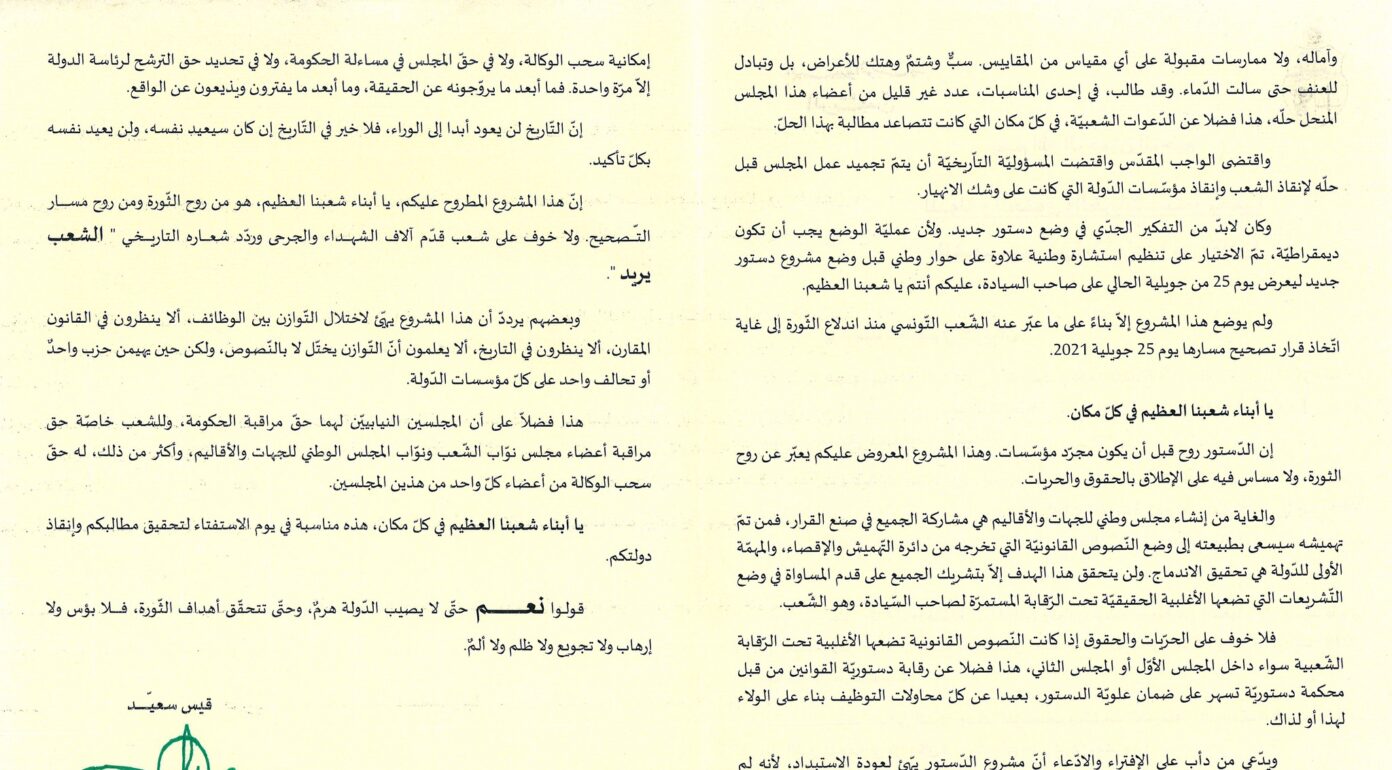 وآماله، ولا ممارسات مقبولة على أي مقياس من المقاييس. سبٌّ وشتمٌ وهتك للأعراض، بل وتبادل
للعنف حتى سالت الدّماء. وقد طالب، في إحدى المناسبات، عدد غير قليل من أعضاء هذا المجلس
المنحل حلّه، هذا فضلا عن الدّعوات الشعبيّة، في كلّ مكان التي كانت تتصاعد مطالبة بهذا الحلّ.
واقتضى الواجب المقدّس واقتضت المسؤوليّة التاّريخيّة أن يتمّ تجميد عمل المجلس قبل
حلّه لإنقاذ الشعب وإنقاذ مؤسّسات الدّولة التي كانت على وشك الانهيار.
وكان لابدّ من التفكير الجدّي في وضع دستور جديد. ولأن عمليّة الوضع يجب أن تكون
ديمقراطيّة، تمّ الاختيار على تنظيم استشارة وطنية علاوة على حوار وطني قبل وضع مشروع دستور
جديد ليعرض يوم 25 من جويلية الحالي على صاحب السيادة، عليكم أنتم يا شعبنا العظيم.
ولم يوضع هذا المشروع إلاّ بناءً على ما عبّر عنه الشّعب التّونسي منذ اندلاع الثّورة إلى غاية
اتّخاذ قرار تصحيح مسارها يوم 25 جويلية 2021.
يا أبناء شعبنا العظيم في كلّ مكان.
إن الدّستور روح قبل أن يكون مجرّد مؤسّسات. وهذا المشروع المعروض عليكم يعبّر عن روح
الثورة، ولا مساس فيه على الإطلاق بالحقوق والحريات.
والغاية من إنشاء مجلس وطني للجهات والأقاليم هي مشاركة الجميع في صنع القرار، فمن تمّ
تهميشه سيسعى بطبيعته إلى وضع النّصوص القانونيّة التي تخرجه من دائرة التّهميش والإقصاء، والمهمّة
الأولى للدّولة هي تحقيق الاندماج. ولن يتحقق هذا الهدف إلاّ بتشريك الجميع على قدم المساواة في وضع
التّشريعات التي تضعها الأغلبية الحقيقيّة تحت الرّقابة المستمرّة لصاحب السّيادة، وهو الشّعب.
فلا خوف على الحرّيات والحقوق إذا كانت النّصوص القانونية تضعها الأغلبية تحت الرّقابة
الشّعبية سواء داخل المجلس الأوّل أو المجلس الثاني، هذا فضلا عن رقابة دستوريّة القوانين من قبل
محكمة دستوريّة تسهر على ضمان علويّة الدستور، بعيدا عن كلّ محاولات التوظيف بناء على الولاء
لهذا أو لذاك.
ويدّعي من دأب على الإفتراء والادّعاء أنّ مشروع الدّستور يهيّئ لعودة الاستبداد، لأنه لم
إمكانية سحب الوكالة، ولا في حقّ المجلس في مساءلة الحكومة، ولا في تحديد حق الترشح لرئاسة الدولة
إلاّ مرّة واحدة. فما أبعد ما يروّجونه عن الحقيقة، وما أبعد ما يفترون ويذيعون عن الواقع.
إنّ التّاريخ لن يعود أبدا إلى الوراء، فلا خير في التّاريخ إن كان سيعيد نفسه، ولن يعيد نفسه
بكلّ تأكيد.
إنّ هذا المشروع المطروح عليكم، يا أبناء شعبنا العظيم، هو من روح الثّورة ومن روح مسار
التّصحيح. ولا خوف على شعب قدّم آلاف الشهداء والجرحى وردّد شعاره التاريخي " الشعب
يريد ".
وبعضهم يردّد أن هذا المشروع يهيّئ لاختلال التّوازن بين الوظائف، ألا ينظرون في القانون
المقارن، ألا ينظرون في التاريخ، ألا يعلمون أنّ التّوازن يختّل لا بالنّصوص، ولكن حين يهيمن حزب واحدٌ
أو تحالف واحد على كلّ مؤسسات الدّولة.
هذا فضلاً على أن المجلسين النيابييّن لهما حقّ مراقبة الحكومة، وللشعب خاصّة حق
مراقبة أعضاء مجلس نوّاب الشّعب ونوّاب المجلس الوطني للجهات والأقاليم، وأكثر من ذلك، له حقّ
سحب الوكالة من أعضاء كلّ واحد من هذين المجلسين.
يا أبناء شعبنا العظيم في كلّ مكان، هذه مناسبة في يوم الاستفتاء لتحقيق مطالبكم وإنقاذ
دولتكم.
قولوا نعم حتّى لا يصيب الدّولة هرمٌ، وحتّى تتحقّق أهداف الثّورة، فلا بؤس ولا
إرهاب ولا تجويع ولا ظلم ولا ألمٌ.
قيس سعيّد